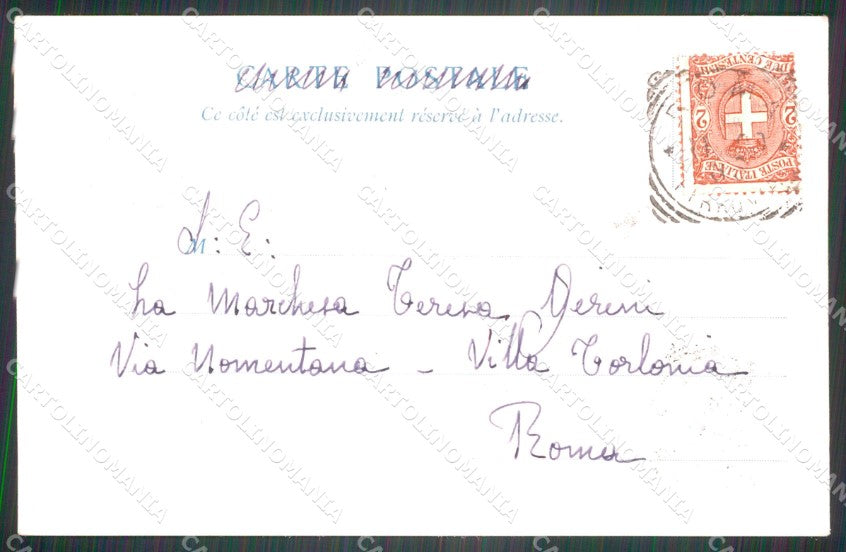 CARTE POSTALE
Ce côté est exclusivement réservé à l'adresse.
POSTE ITALIANE
2 2
DUE CENTESIMI
ROMA
S: E:
La Marchesa Teresa Gerini
Via Nomentana – Villa Torlonia
Roma
CARTOLINOMANIA